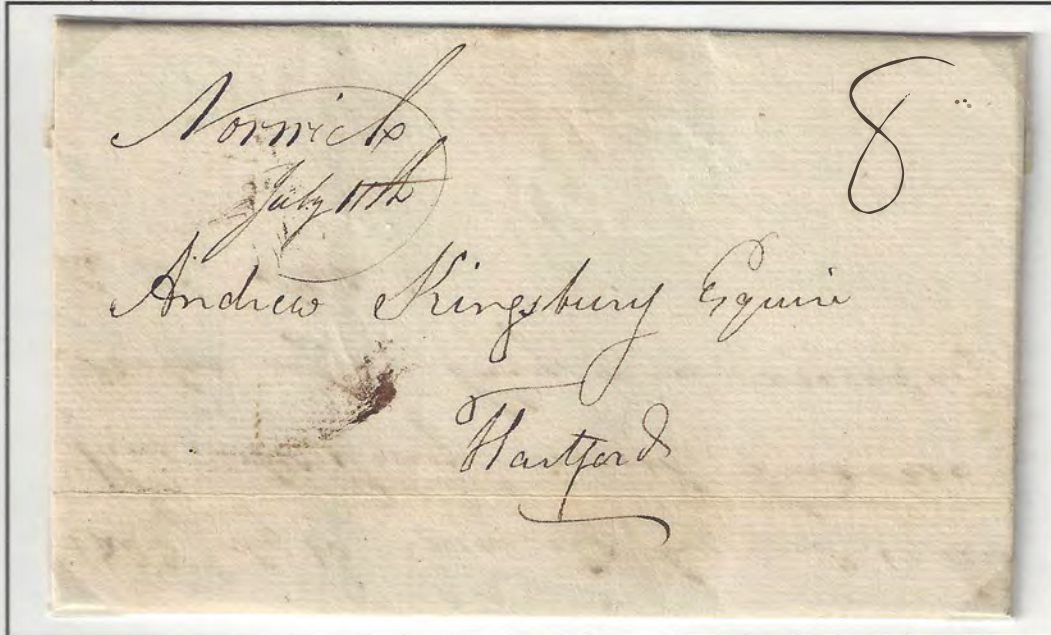 Norwich
July 11th
8
Andrew Kingsbury Esquire
Hartford